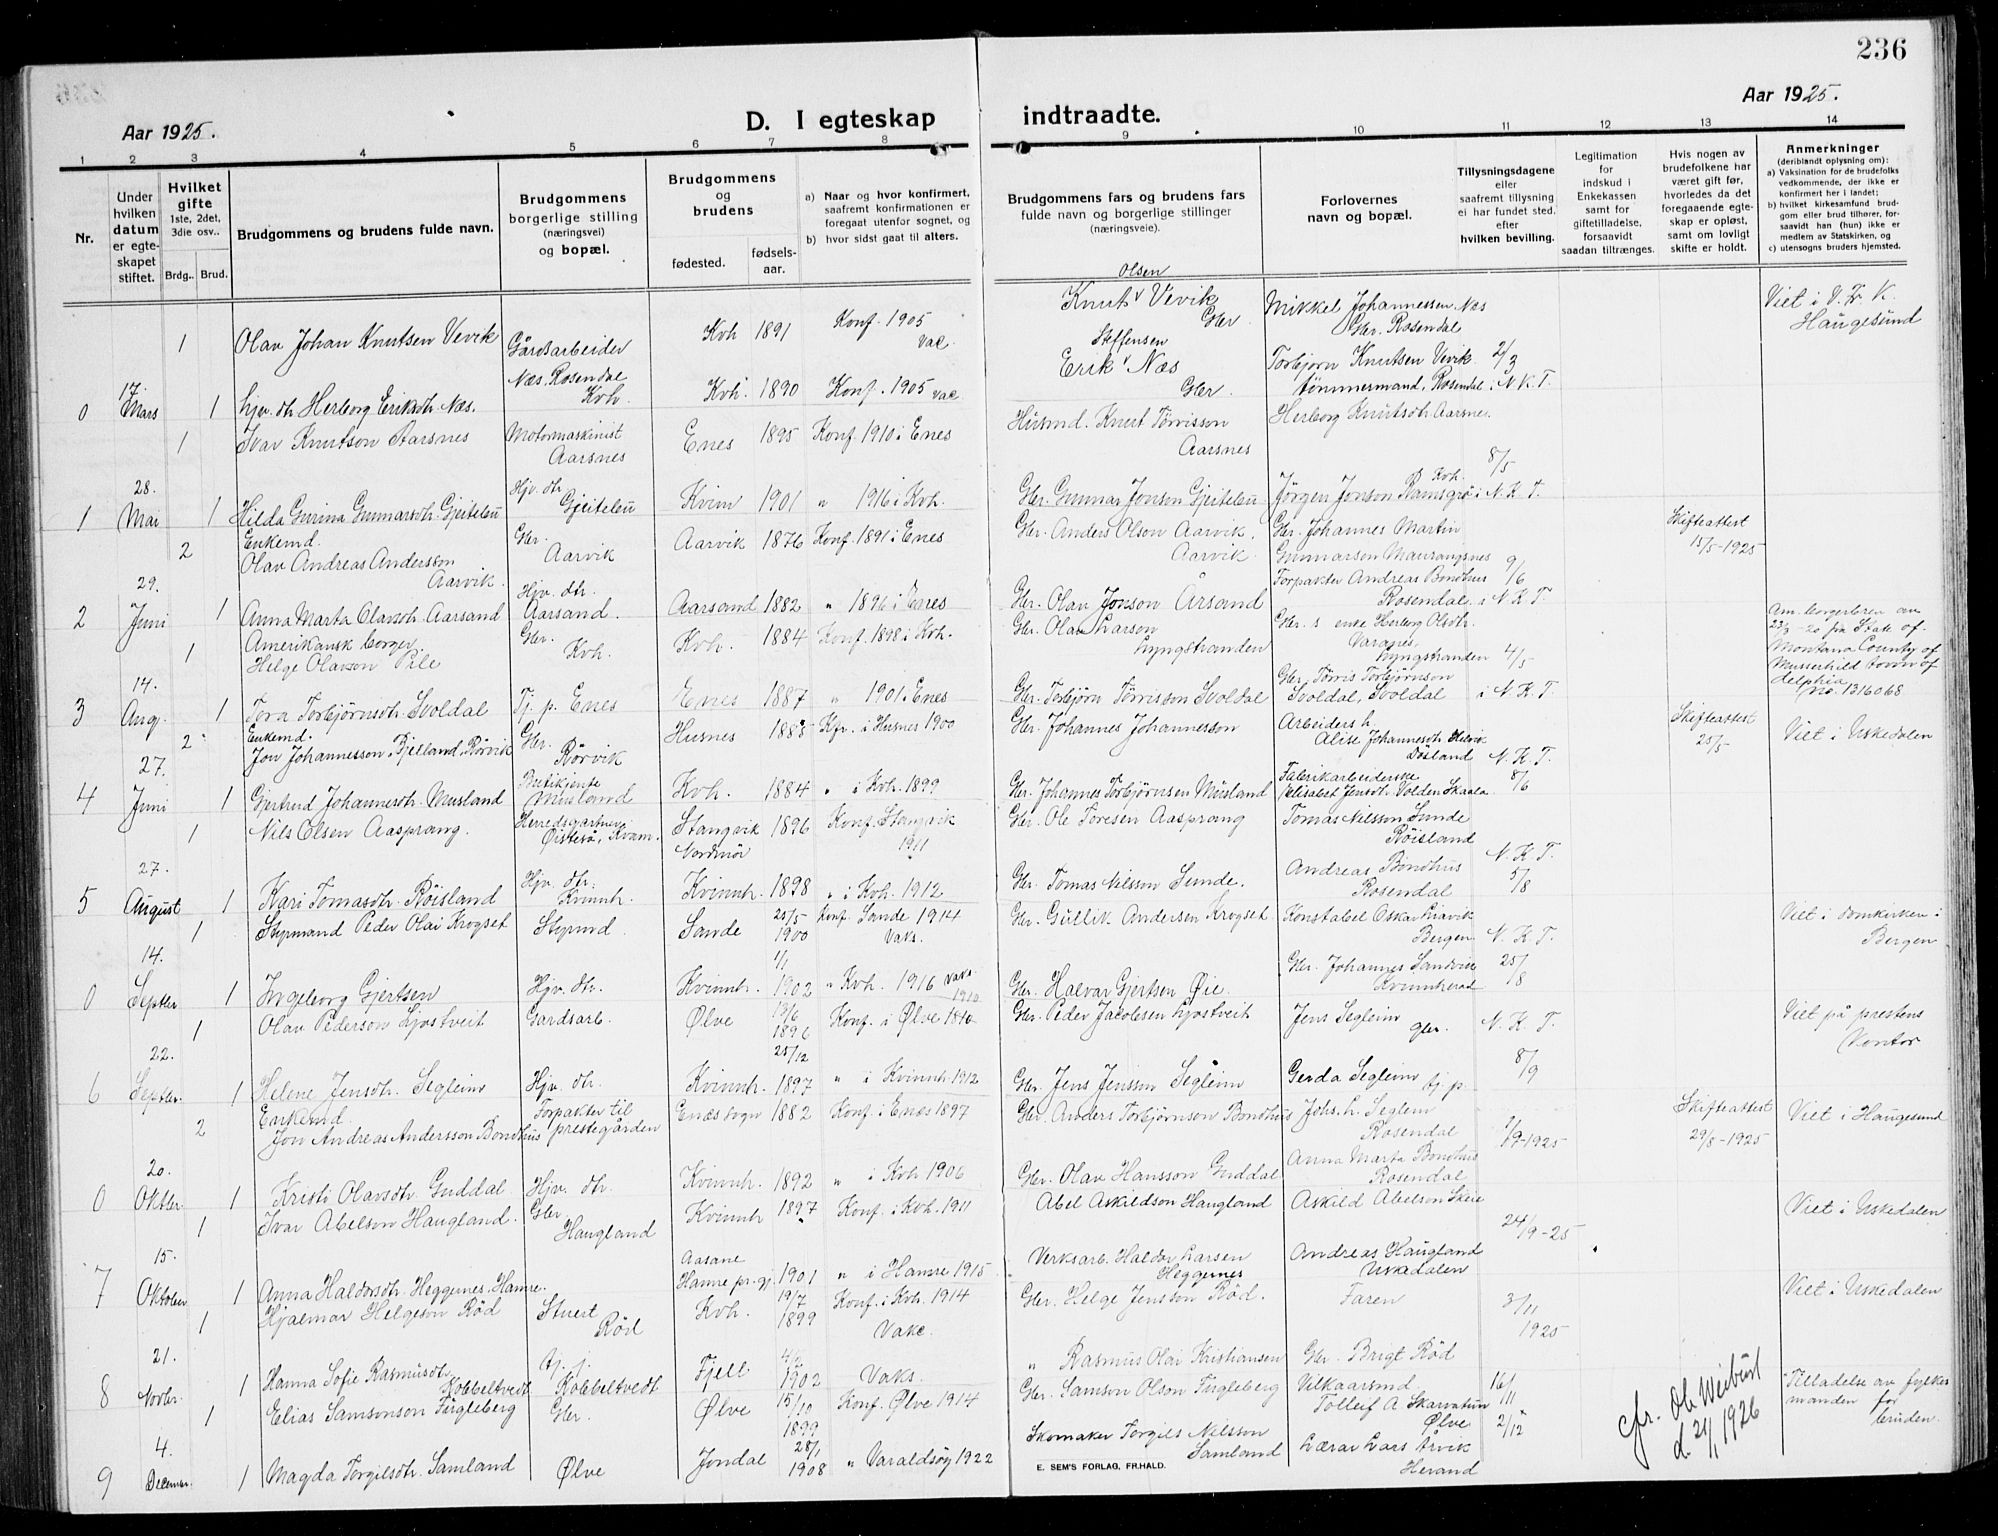 236
Aar 1925.
D. I egteskap indtraadte.
Aar 1925.
1 2 3 4 5 6 7 8 9 10 11 12 13 14
Nr.
Under hvilken datum er egteskapet stiftet.
Hvilket gifte 1ste, 2det, 3die osv..
Brdg.. Brud.
Brudgommens og brudens fulde navn.
Brudgommens borgerlige stilling (næringsvei) og bopæl.
Brudgommens og brudens
fødested. fødselsaar.
a) Naar og hvor konfirmert, saafremt konfirmationen er foregaat utenfor sognet, og
b) hvor sidst gaat til alters.
Brudgommens fars og brudens fars fulde navn og borgerlige stillinger (næringsveie).
Forlovernes navn og bopæl.
Tillysningsdagene eller saafremt tillysning ei har fundet sted, efter hvilken bevilling.
Legitimation for indskud i Enkekassen samt for giftetilladelse, forsaavidt saadan tiltrænges.
Hvis nogen av brudefolkene har været gift før, hvorledes da det foregaaende egteskap er opløst, samt om lovligt skifte er holdt.
Anmerkninger (deriblandt oplysning om):
a) Vaksination for de brudefolks vedkommende, der ikke er konfirmert her i landet;
b) hvilket kirkesamfund brudgom eller brud tilhører, forsaavidt han (hun) ikke er medlem av Statskirken, og
c) utensogns bruders hjemsted.
1 Olav Johan Knutsen Vevik Gårdsarbeider Næs. Rosendal Kvh. Kvh 1891 Konf. 1905 vac. Knut Olsen Vevik Gbr. Mikkel Johannessen Næs Gbr. Rosendal Viet i V. Fr. K. Haugesund
0 17. Mars 1 hjv. dtr Herborg Eriksdtr. Næs. Kvh. 1890 Konf. 1905 vac Erik Steffensen Næs Gbr. Torbjørn Knutsen Vevik tømmermand, Rosendal 2/3 i N.K.T.
1 Ivar Knutson Aarsnes Motormaskinist Aarsnes Enes 1895 Konf. 1910 i Enes Husmd. Knut Tørrisson Aarsnes Herborg Knutsdtr. Aarsnes. Kvh. 8/5
1 28. Mai 1 Hilda Gurina Gunnarsdtr. Gjeiteleu Hjv. dtr. Gjeiteleu Kvinn 1901 " 1916 i Kvh. Gbr. Gunnar Jonson Gjeiteleu Jörgen Jonson Ramsgrø i N.K.T.
2 Enkemd. Olav Andreas Andersson Aarvik. Gbr. Aarvik Aarvik 1876 Konf. 1891 i Enes Gbr. Anders Olson Aarvik. Aarvik. Gbr. Johannes Martin Gunnarsen Maurangsnes 9/6 Skifteattest 15/5-1925
2 29. Juni 1 Anna Marta Olavsdtr. Aarsand Hjv. dtr. Aarsand. Aarsand 1882 " 1896 i Enes Gbr. Olav Jonson Årsand Forpakter Andreas Bondhus Rosendal. i N.K.T.
1 Amerikansk borger. Helge Olavson Pile Gbr. Kvh. Kvh. 1884 Konf. 1898 i Kvh. Gbr. Olav Larson Lyngstranden Gbr.s enke Herborg Olsdtr. Varanes, Lyngstranden 4/5 Am. borgerbrev av 23/3-20 fra State of Montana County of Musserhild town of delphia no. 1316068
3 14. Aug. 1 Tora Torbjørnsdtr. Svoldal Tj. p. Enes Enes 1887 " 1901. Enes Gbr. Torbjørn Tørrisson Svoldal Gbr. Tørris Torbjørnson Svoldal, Svoldal i N.K.T.
2 Enkemd. Jon Johannesson Bjelland, Rørvik Gbr. Rørvik Husnes 1885 Kfr. i Husnes 1900 Gbr. Johannes Johannesson Arbeiders h. Alise Johannesdtr. Helvik Døsland Skifteattest 25/5 Viet i Uskedalen
4 27. Juni 1 Gjertrud Johannesdtr. Musland Butikjente Musland Kvh. 1884 " i Kvh. 1899 Gbr. Johannes Torbjørnsen Musland Fabrikarbeiderske Elisabet Jensdtr. Volden Skaala N.K.T. 8/6
1 Nils Olsen Aasprang. Herredsgartner Øistesø, Kvam. Stangvik Nordmör 1896 Konf. Stangvik 1911 Gbr. Ole Toresen Aasprang Tomas Nilsson Sunde Røisland
5 27. August 1 Kari Tomasdtr. Røisland Hjv. dtr. Kvinnh. Kvinnh. 1898 " i Kvh. 1912 Gbr. Tomas Nilsson Sunde. Andreas Bondhus Rosendal N.K.T. 5/8
1 Styrmand Peder Olai Krogset Styrmd. Sande 25/5 1900 Konf. Sande 1914 Vaks. Gbr. Gullik Andersen Krogset Konstabel Oskar Liavik Bergen Viet i domkirken i Bergen
0 14. Septbr 1 Ingeborg Gjertsen Hjv. dtr. Kvinnh. 1/1 1902 " Kvh. 1916 vaks. 1910 Gbr. Halvar Gjertsen Øie. Gbr. Johannes Sandvik Kvinnherad N.K.T. 25/8
1 Olav Pederson Ljostveit Gardsarb. Ølve 13/6 1896 Konf. i Ølve 1910 Gbr. Peder Jacobsen Ljostveit Jens Segleim gbr. Viet på prestens Kontor
6 22. Septbr. 1 Helene Jensdtr. Segleim Hjv. dtr. Kvinnh. 25/12 1897 " i Kvinnh. 1912 Gbr. Jens Jensson Segleim Gerda Segleim tj. p. N.K.T. 8/9
2 Enkemd. Jon Andreas Andersson Bondhus Forpakter til prestegården Enæs sogn 1882 Konf. i Enæs 1897 Gbr. Anders Torbjørnson Bondhus Johs. L. Seglem Rosendal 1/9-1925 Skifteattest 29/8-1925 Viet i Haugesund
0 20. Oktbr. 1 Kristi Olavsdtr. Guddal Hjv. dtr. Kvinnh. 1892 " i Kvh 1906 Gbr. Olav Hansson Guddal Anna Marta Bondhus Rosendal
1 Ivar Abelson Haugland. Gbr. Haugland Kvinnh 1897 Konf. i Kvh. 1911 Abel Askildson Haugland Askild Abelson Skeie 24/9-25 Viet i Uskedalen
7 15. Oktober 1 Anna Haldorsdtr. Heggernes. Hamre. Aasane Hamre pr.gj. 1901 " i Hamre 1915 Verksarb. Haldor Larsen Heggernes Andreas Haugland Uskedalen
1 Hjalmar Helgeson Rød Stuert Rød Kvh. 19/7 1899 Konf. i Kvh. 1914 Vakc. Gbr. Helge Jensson Rød. Faren 3/11 1925 Viet i Uskedalen
8 21. Novbr. 1 Hanna Sofie Rasmusdtr. Kobbeltvedt tj. j. Kobbeltvedt Fjell 1902 Vaks. " Rasmus Olai Kristiansen Gbr. Brigt Rød
1 Elias Samsonson Fugleberg Gbr. Ølve 15/10 1899 Konf. Ølve 1914 Gbr. Samson Olson Fugleberg Vilkaarsmd Tollef A Skarvatun Ølve 16/11 2/12 Tilladelse av fylkesmanden for bruden.
9 4. December. 1 Magda Torgilsdtr. Samland Ølve Jondal 28/1 1908 " Varaldsøy 1922 Skomaker Torgils Nilsson Samland Lærar Lars Årvik Herand
gfr. Ob. Weibust d. 21/1 1926
E. SEM'S FORLAG, FR.HALD.